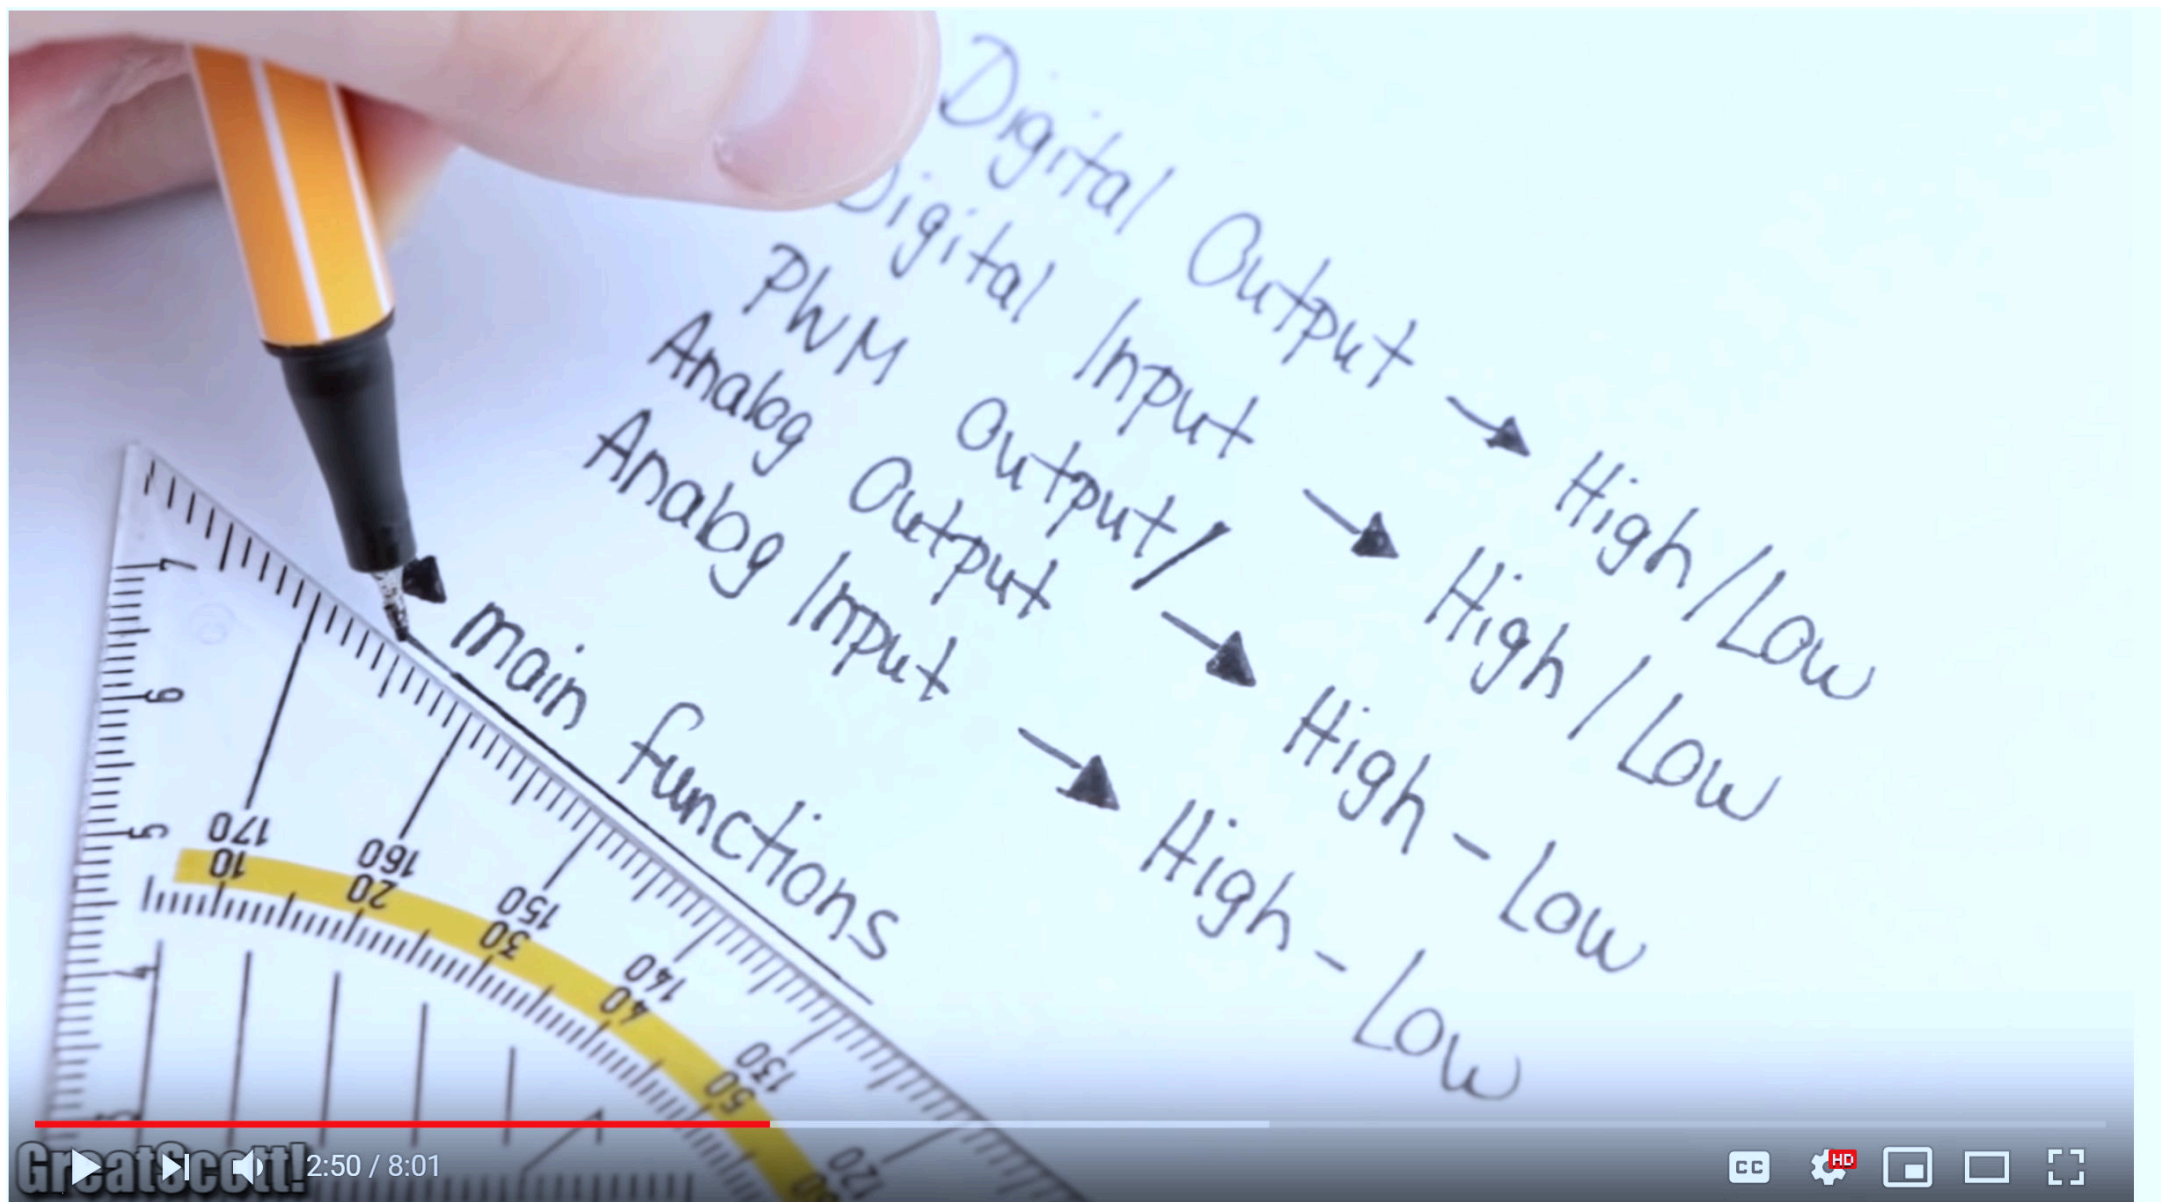 Digital Output → High/Low
Digital Input → High/Low
PWM Output/
Analog Output → High - Low
Analog Input → High - Low
main functions
7
6
5
4
170 160 150 140 130 120
10 20 30 40 50
GreatScott!
2:50 / 8:01
CC HD